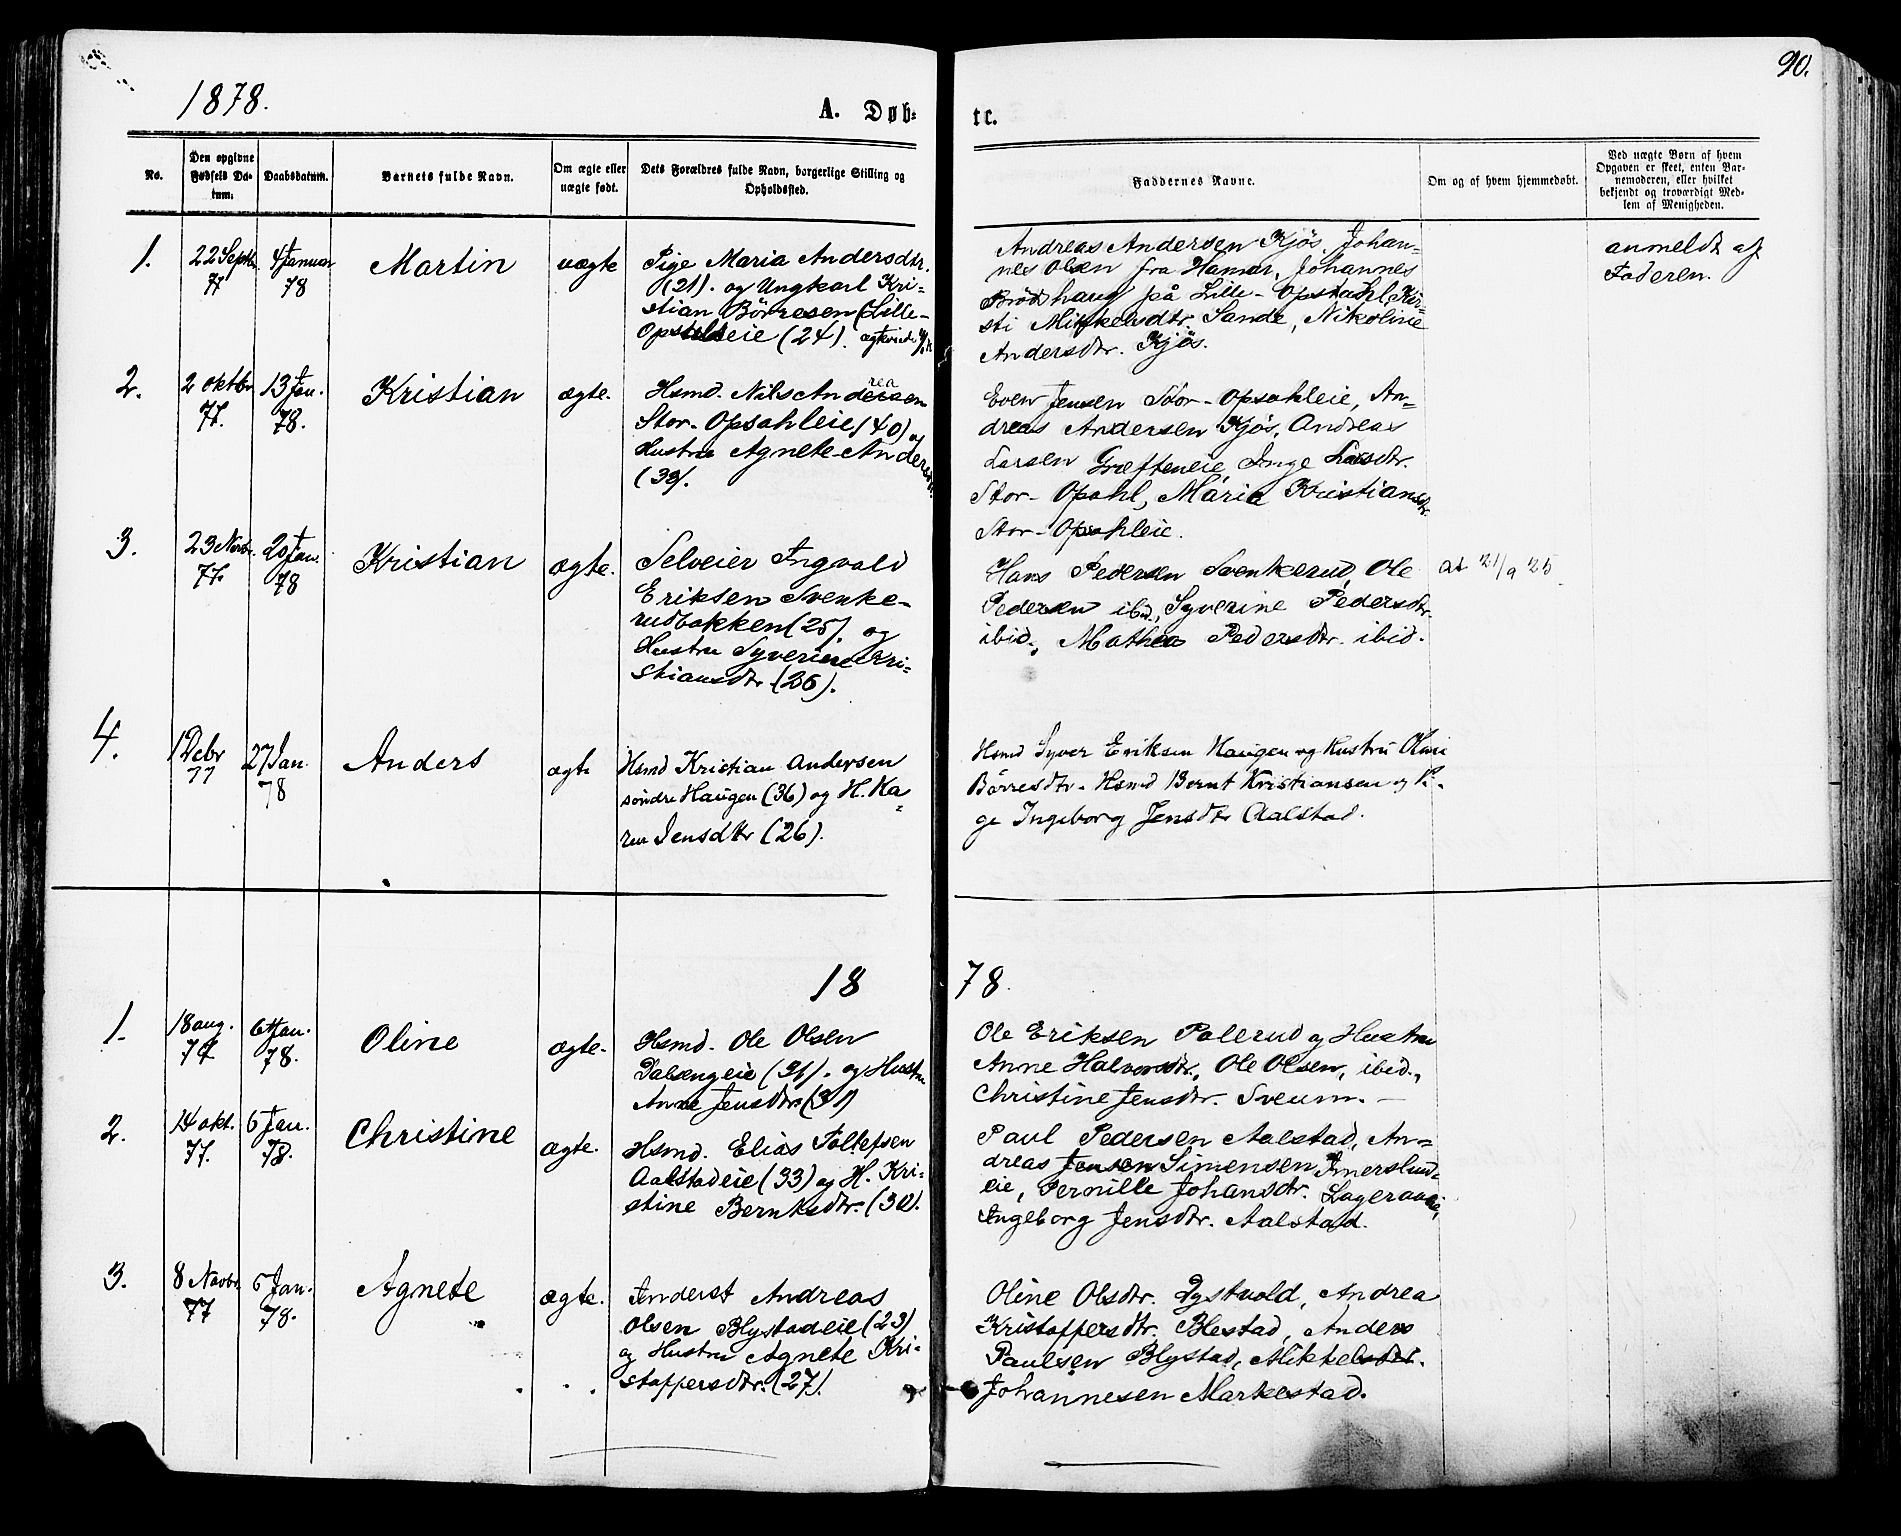 90.
1878.
A. Døb-
te.
No.
Den opgivne Fødsels Datum.
Daabsdatum.
Barnets fulde Navn.
Om ægte eller uægte født.
Dets Forældres fulde Navn, borgerlige Stilling og Opholdssted.
Faddernes Navne.
Om og af hvem hjemmedøbt.
Ved uægte Børn af hvem Opgaven er skeet, enten Barnemoderen, eller hvilket bekjendt og troværdigt Medlem af Menigheden.
1.
22 Septbr. 77
4 Januar 78
Martin
uægte
Pige Maria Andersdtr.
(21). og Ungkarl Kri-
stian Börresen (Lille-
Opsaleie (24).
Andreas Andersen Kjös, Johan-
nes Olsen fra Hamar, Johannes
Brödhaug på Lille-Opsahl, Kir-
sti Mikkelsdtr. Sande, Nikoline
Andersdtr. Kjös.
anmeldt af
Faderen.
2.
2 oktbr. 77.
13 Jan. 78.
Kristian
ægte.
Hsmd. Nils Andreasen
Stor-Opsahleie (40) og
Hustru Agnete Andersdtr.
(39).
Even Jensen Stor-Opsahleie, An-
dreas Andersen Kjös, Andreas
Larsen Græfteneie, Inge Larsdtr.
Stor-Opsahl, Maria Kristiansdtr.
Stor-Opsahleie.
3.
23 Novbr. 77.
20 Jan. 78
Kristian
ægte.
Selveier Ingvald
Eriksen Svenke-
rudbakken (25). og
Hustru Syverine Kri-
stiansdtr. (26).
Hans Pedersen Svenkerud, Ole
Pedersen ibd., Syverine Pedersdtr.
ibid., Mathea Pedersdtr. ibid.
at 21/9 25
4.
1 Debr 77
27 Jan. 78
Anders
ægte
Hsmd Kristian Andersen
söndre Haugen (36) og H. Ka-
ren Jensdtr (26).
Hsmd Syver Eriksen Haugen og Hustru
Börresdtr. Hsmd Bernt Kristiansen og Pi-
ge Ingeborg Jensdtr Aalstad.
18
78.
1.
18 aug. 77
6 Jan. 78.
Oline
ægte.
Hsmd. Ole Olsen
Dalsengeie (31). og Hustru
Anne Jensdtr (31)
Ole Eriksen Pálerud og Hustru
Anne Halvorsdtr., Ole Olsen, ibid.,
Christine Jensdtr. Sveum.
2.
14 okt. 77.
6 Jan. 78.
Christine
ægte.
Hsmd. Elias Tollefsen
Aalstadeie (33) og H. Kri-
stine Berntsdtr. (30).
Paul Pedersen Aalstad, An-
dreas Jensen Simensen Imerslund-
eie, Pernille Johansdtr.
Ingeborg Jensdtr. Aalstad.
3.
8 Novbr. 77
6 Jan. 78.
Agnete
ægte.
Inderst Andreas
Olsen Blystadeie (23)
og Hustru Agnete Kri-
stoffersdtr. (27).
Oline Olsdtr. Dystvold, Andrea
Kristoffersdtr. Blestad, Anders
Paulsen Blystad, Mikkelsdtr.
Johannesen Markestad.